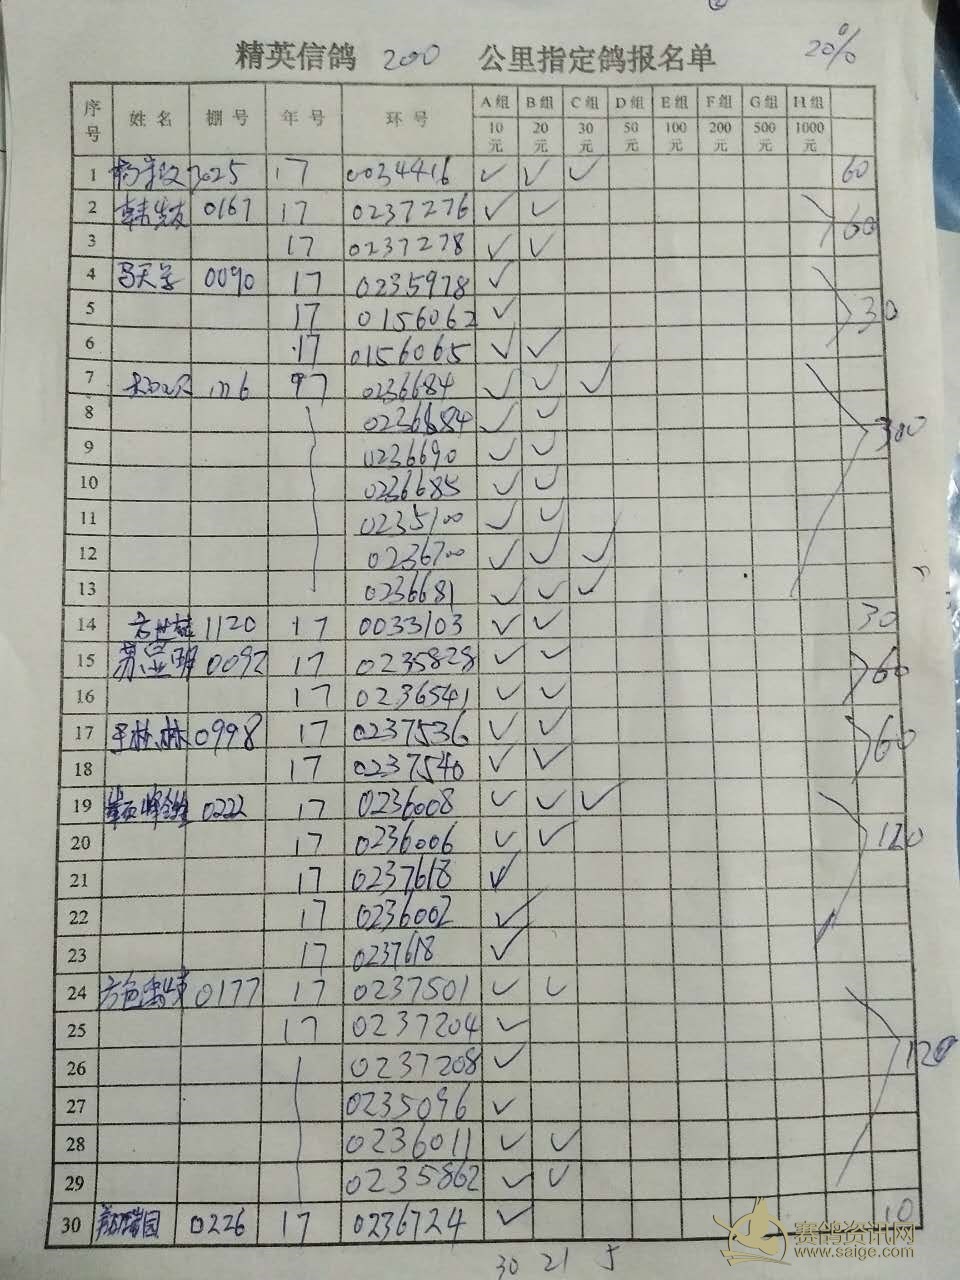 精英信鸽 200 公里指定鸽报名单 20%
序号 姓名 棚号 年号 环号 A组 B组 C组 D组 E组 F组 G组 H组
10元 20元 30元 50元 100元 200元 500元 1000元
1 7025 17 0034416 ✓ ✓ ✓ 60
2 0167 17 0237276 ✓ ✓ 60
3 17 0237278 ✓ ✓
4 0090 17 0235978 ✓
5 17 0156062 ✓ 30
6 17 0156065 ✓ ✓
7 0236684 ✓ ✓ ✓
8 0236684 ✓ ✓ 300
9 0236690 ✓ ✓
10 0236685 ✓ ✓
11 0235100 ✓ ✓
12 0236700 ✓ ✓ ✓
13 0236681 ✓ ✓ ✓
14 1120 17 0033103 ✓ ✓ 30
15 苏显明 0092 17 0235828 ✓ ✓ 60
16 17 0236541 ✓ ✓
17 林林 0998 17 0237536 ✓ ✓ 60
18 17 0237540 ✓ ✓
19 0222 17 0236008 ✓ ✓ ✓
20 17 0236006 ✓ ✓ 120
21 17 0237618 ✓
22 17 0236002 ✓
23 17 0237618 ✓
24 0177 17 0237501 ✓ ✓
25 17 0237204 ✓
26 0237208 ✓ 120
27 0235096 ✓
28 0236011 ✓ ✓
29 0235862 ✓ ✓
30 0226 17 0236724 ✓ 10
30 21 5
赛鸽资讯网
www.saige.com